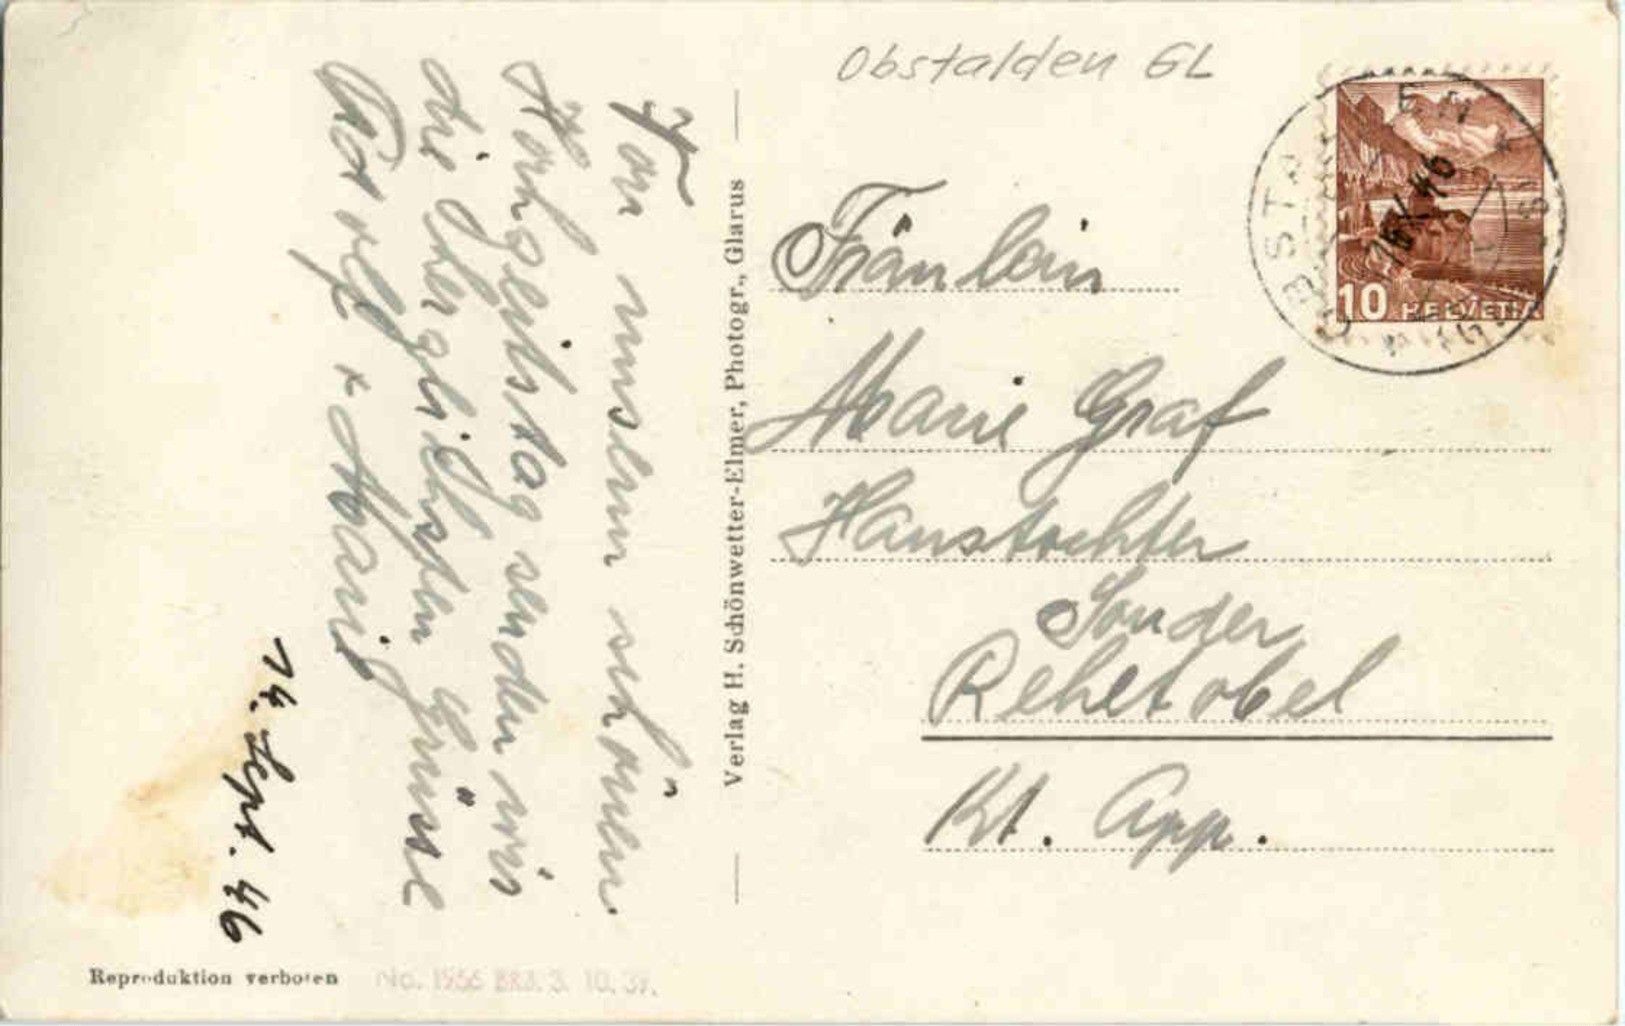 Von unserm schönen
Hochzeitstag senden wir
die herzlichsten Grüsse
Adolf + Marie
14. Sept. 46
Reproduktion verboten
No. 1956 BRB. 3. 10. 39.
Verlag H. Schönwetter-Elmer, Photogr., Glarus
Obstalden GL
OBSTALDEN
16 IX 46
10 HELVETIA
Fräulein
Marie Graf
Haustochter
Sonder
Rehetobel
Kt. App.